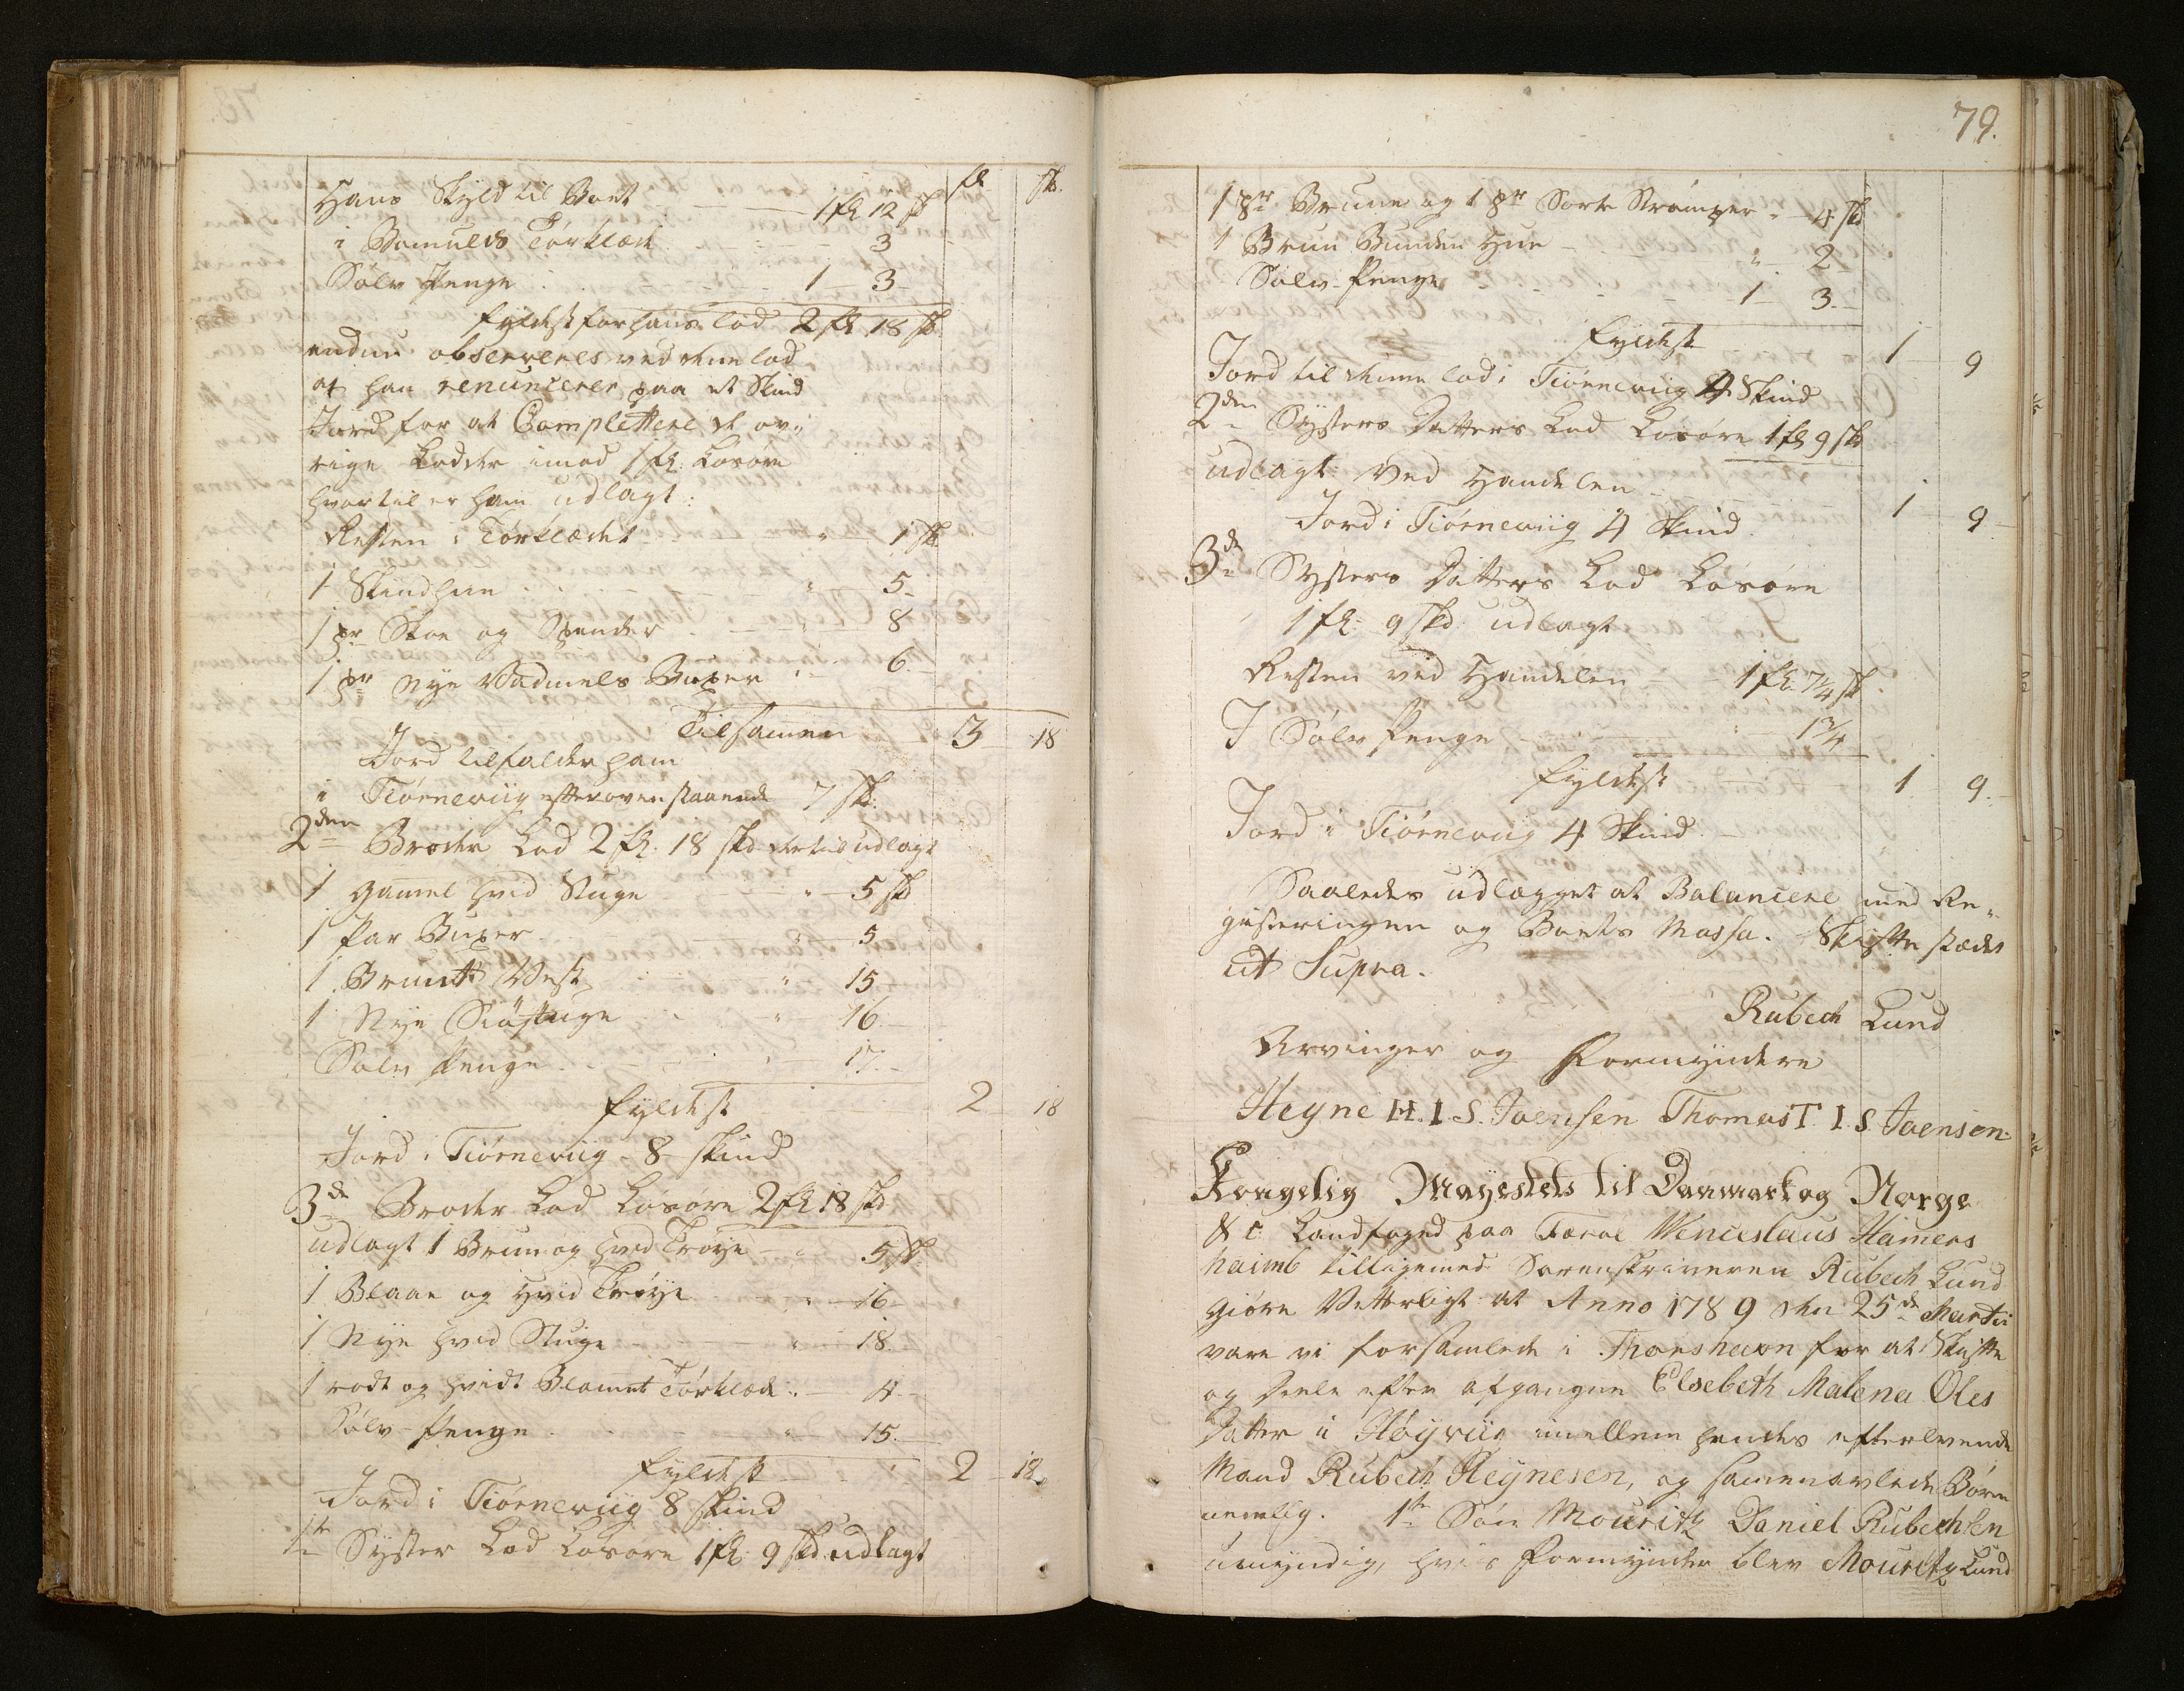 fl. sk.
Hans Skyld til Boet 1 fl 12 sk
i Bomulds Tørklæde 3
Sølv Penge 1 3
fyldest for hans lod 2 fl 18 sk
endnu observeres ved denne lod
at han renuncerer paa et Skind
Jord for at Complettere de øv¡
rige Lodder imod 1 fl: Løsøre
hvortil er ham udlagt:
Resten i Tørklædet " 1 sk
1 Skindhue " 5
1 pr Skoe og Spender " 8
1 pr Nye Vadmels Buxer " 6
Tilsamen 3 18
Jord tilfalder ham
i Tiørneviig efter ovenstaaende 7 sk:
2den Broder Lod 2 fl. 18 skd dertil udlagt
1 gamel hvid Stuge " 5 sk
1 Par Buxer " 5
1 Bruut Vest " 15
1 Nye Siøstuge " 16
Sølv Penge " 17
fyldest 2 18
Jord i Tiørneviig 8 skind
3de Broder Lod Løsøre 2 fl 18 skd
udlagt 1 Brun og hvid Trøye " 5 sk
1 Blaae og hvid Trøye " 16
1 Nye hvid Stuge " 18
1 rødt og hvidt Blomet Tørklæde " 4
Sølv-Penge " 15
fyldest 2 18
Jord i Tiørneviig 8 skind
1te Syster Lod Løsøre 1 fl: 9 skd udlagt
79.
1 pr Brune og 1 pr Sorte Strømper " 4 sk
1 Brun Bunden Hue " 2
Sølv-Penge 1 3
fyldest 1 9
Jord til denne lod i Tiørneviig 4 Skind
2den Systers Datters Lod Løsøre 1 fl 9 sk
udlagt ved Handelen 1 9
Jord i Tiørneviig 4 skind
3de Systers Datters Lod Løsøre
1 fl: 9 skd: udlagt
Resten ved Handelen 1 fl: 7¼ sk
I Sølv Penge " 1¾
fyldest 1 9
Jord i Tiørneviig 4 Skind
Saaledes udlagget at Balancere med Re-
gisteringen og Boets Massa. Skifte stædet
ut Supra.
Rubech Lund
Arvinger og Formyndere
Heyne H. I. S. Joensen Thomas T. I. S. Joensen
Kongelig Mayestets til Danmark og Norge
&c Landfoged paa Færøe Wenceslaus Hamers
haimb tilligemed Sorenskriveren Rubech Lund
giøre Vetterligt at Anno 1789 den 25de Martii
vare vi forsamlede i Thorshavn for at Skifte
og Deele efter afgangne Elsebeth Malena Oles
Datter i Høyviig imellem hendes efterlevende
Mand Rubech Heynesen, og samenavlede Børn
nemlig. 1te Søn Mouritz Daniel Rubechsen
umyndig, hvis Formynder blev Mouritz Lund